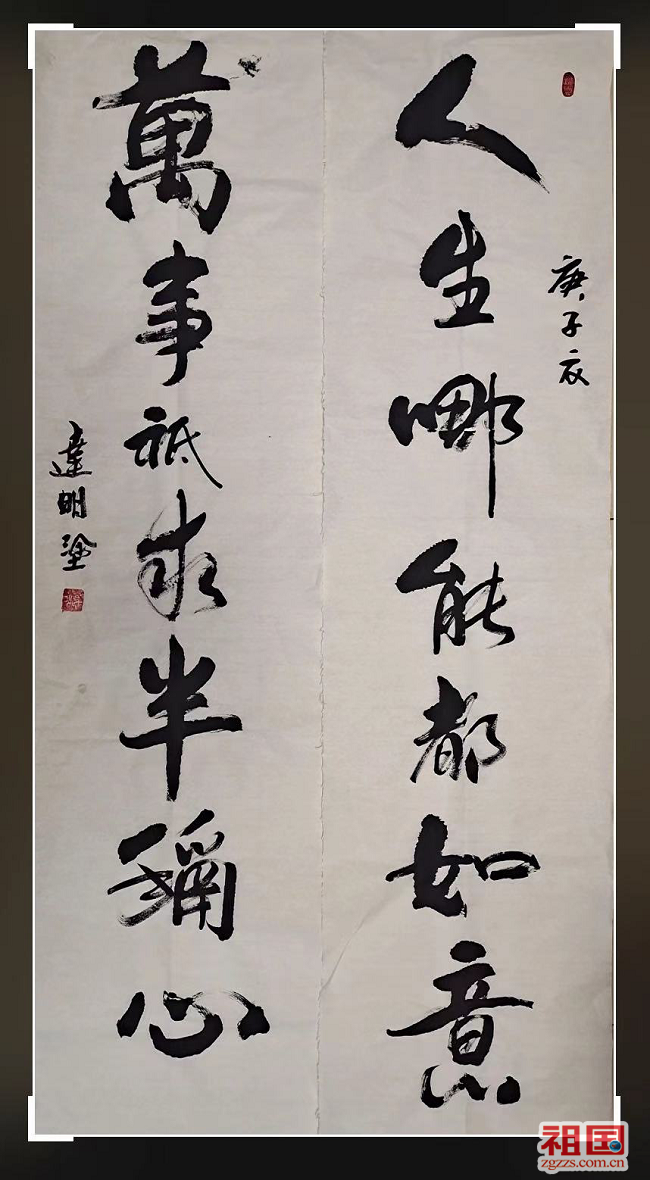 人生哪能都如意
庚子
萬事祇求半稱心
達明塗
祖国
zgzzs.com.cn